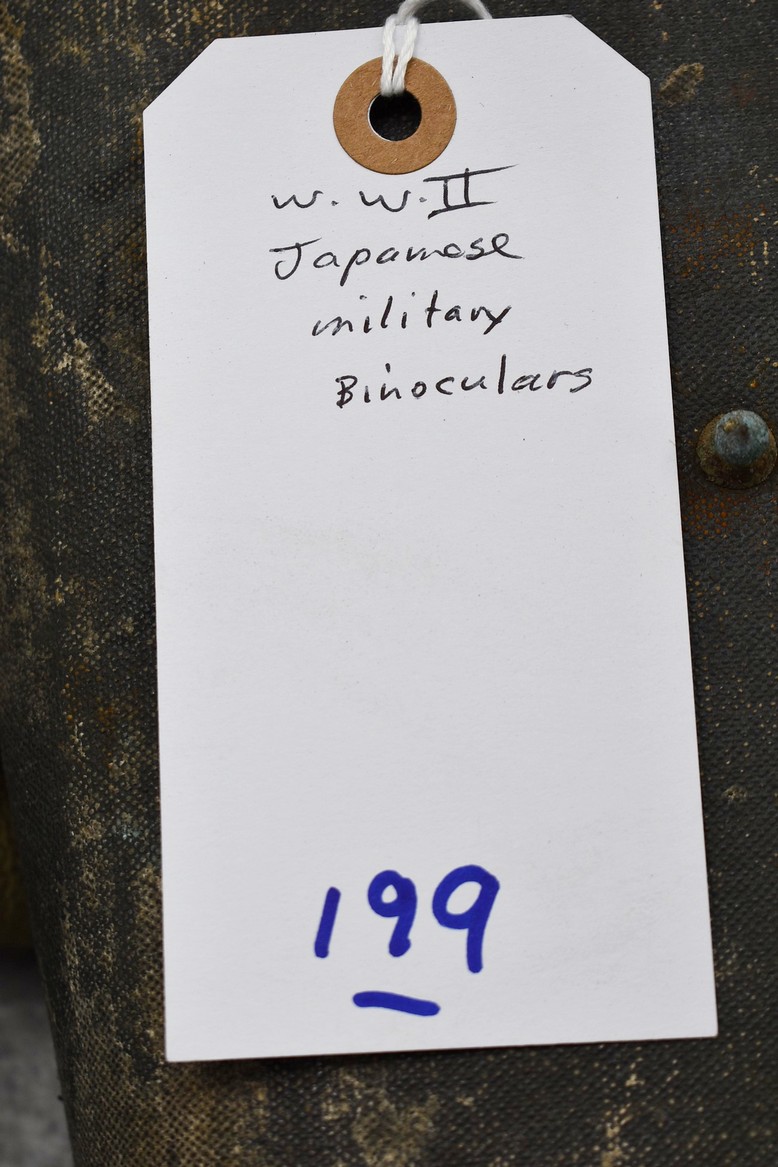 W. W. II
Japanese
military
Binoculars
199